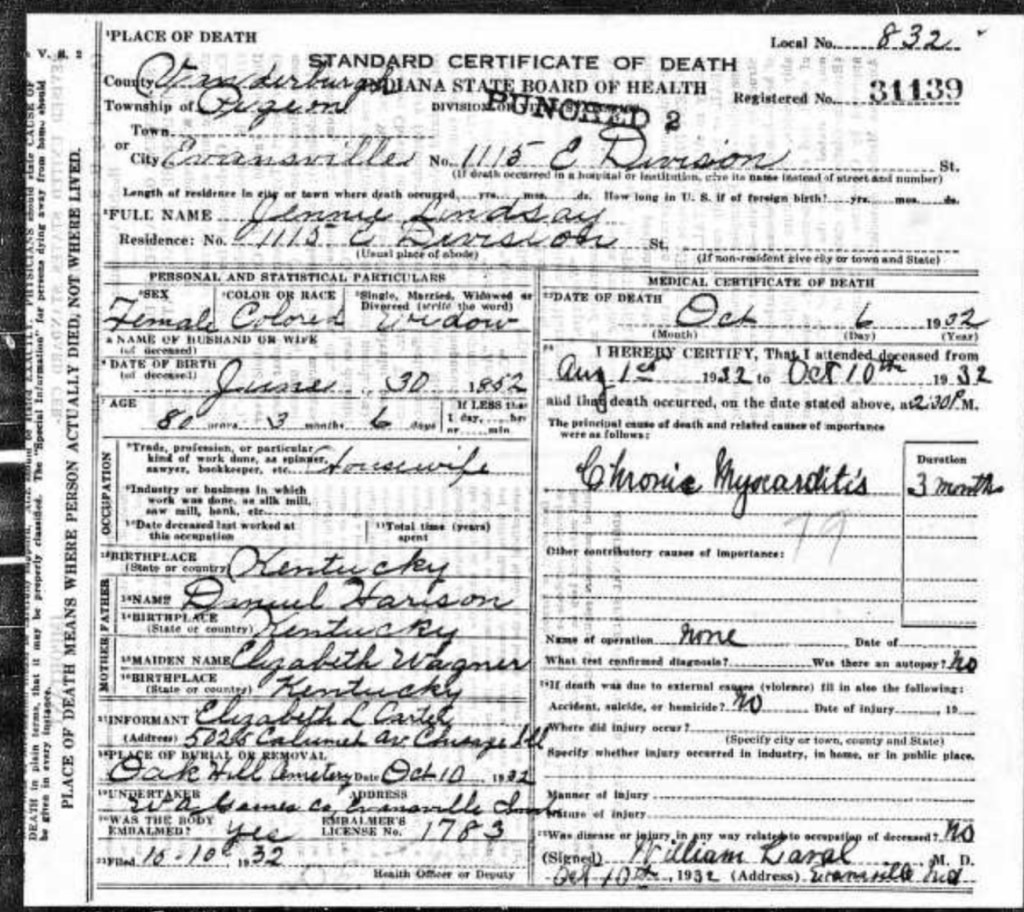 V. S. 2
¹PLACE OF DEATH
Local No. 832
STANDARD CERTIFICATE OF DEATH
County Vanderburgh
INDIANA STATE BOARD OF HEALTH
Township of Pigeon
Registered No. 31139
PUNCHED 2
Town
or
City Evansville No. 1115 E Division St.
(If death occurred in a hospital or institution, give its name instead of street and number)
Length of residence in city or town where death occurred yrs. mos. ds. How long in U. S. if of foreign birth? yrs. mos. ds.
²FULL NAME Jennie Lindsay
Residence: No. 1115 E Division St.
(Usual place of abode)
(If non-resident give city or town and State)
PERSONAL AND STATISTICAL PARTICULARS
³SEX Female
⁴COLOR OR RACE Colored
⁵Single, Married, Widowed or Divorced (write the word) widow
NAME OF HUSBAND OR WIFE
(of deceased)
⁶DATE OF BIRTH
(of deceased) June 30 1852
⁷AGE
80 years 3 months 6 days
If LESS than
1 day, hr.
or min.
OCCUPATION
⁸Trade, profession, or particular
kind of work done, as spinner,
sawyer, bookkeeper, etc. Housewife
⁹Industry or business in which
work was done, as silk mill,
saw mill, bank, etc.
¹⁰Date deceased last worked at
this occupation
¹¹Total time (years)
spent
¹²BIRTHPLACE
(State or country) Kentucky
FATHER
¹³NAME Daniel Harison
¹⁴BIRTHPLACE
(State or country) Kentucky
MOTHER
¹⁵MAIDEN NAME Elyzabeth Wagner
¹⁶BIRTHPLACE
(State or country) Kentucky
¹⁷INFORMANT Elizabeth L Carter
(Address) Calumet Av Chicago Ill
¹⁸PLACE OF BURIAL OR REMOVAL
Oak Hill Cemetery Date Oct 10 1932
¹⁹UNDERTAKER ADDRESS
W A Gaines Co, Evansville Ind
²⁰WAS THE BODY
EMBALMED? yes
EMBALMER'S
LICENSE No. 1783
²¹Filed 10-10 1932
Health Officer or Deputy
MEDICAL CERTIFICATE OF DEATH
²²DATE OF DEATH
Oct 6 1932
(Month) (Day) (Year)
I HEREBY CERTIFY, That I attended deceased from
Aug 1st 1932 to Oct 10th 1932
and that death occurred, on the date stated above, at 2:30 P.M.
The principal cause of death and related causes of importance
were as follows:
Duration
Chronic Myocarditis 3 months
Other contributory causes of importance:
Name of operation none Date of
What test confirmed diagnosis? Was there an autopsy? No
²⁴If death was due to external causes (violence) fill in also the following:
Accident, suicide, or homicide? No Date of injury 19
Where did injury occur?
(Specify city or town, county and State)
Specify whether injury occurred in industry, in home, or in public place.
Manner of injury
Nature of injury
²⁵Was disease or injury in any way related to occupation of deceased? No
(Signed) William M. D.
Oct 10th, 1932 (Address) Evansville Ind
PLACE OF DEATH MEANS WHERE PERSON ACTUALLY DIED, NOT WHERE LIVED.
DEATH in plain terms, that it may be properly classified. The "Special Information" for persons dying away from home should
be given in every instance.